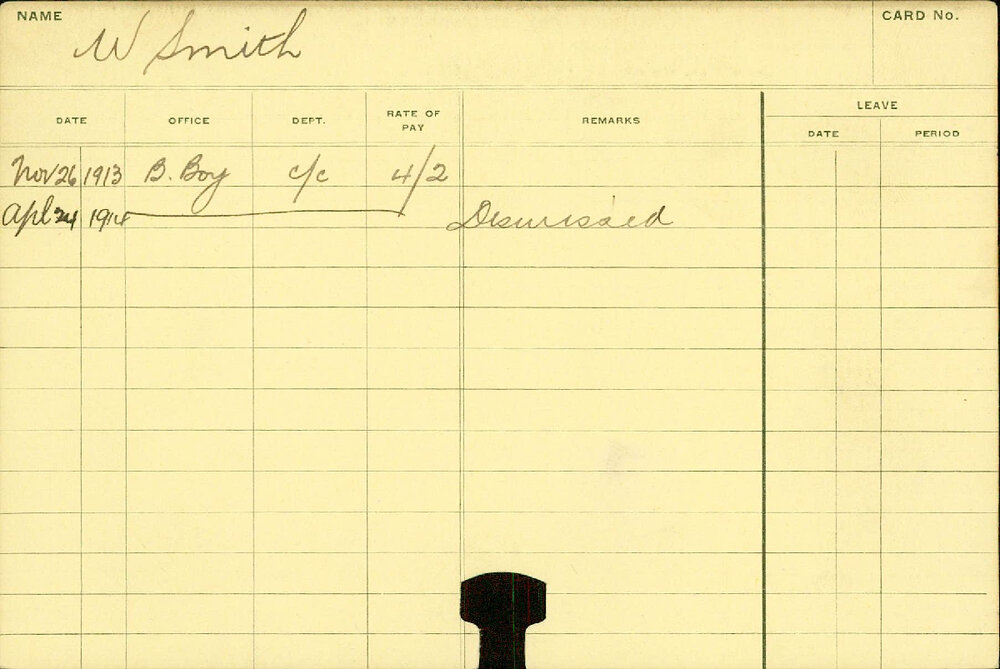 NAME W Smith CARD No.
DATE OFFICE DEPT. RATE OF PAY REMARKS LEAVE
DATE PERIOD
Nov 26 1913 B. Boy c/c 4/2
Apl 24 1914 Dismissed